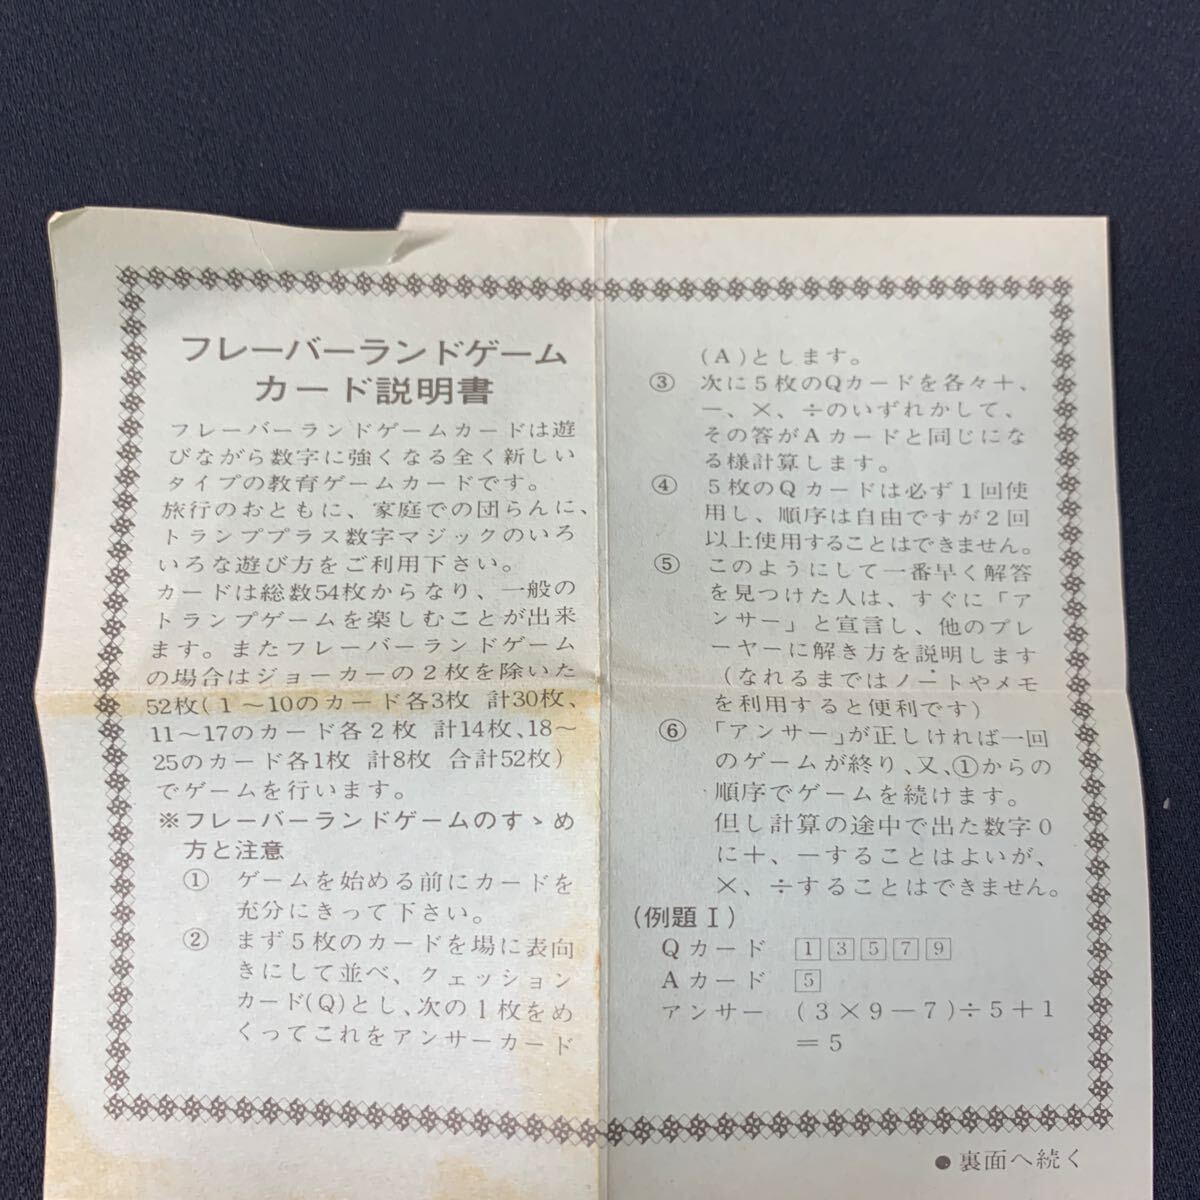 フレーバーランドゲーム
カード説明書
フレーバーランドゲームカードは遊
びながら数字に強くなる全く新しい
タイプの教育ゲームカードです。
旅行のおともに、家庭での団らんに、
トランププラス数字マジックのいろ
いろな遊び方をご利用下さい。
カードは総数54枚からなり、一般の
トランプゲームを楽しむことが出来
ます。またフレーバーランドゲーム
の場合はジョーカーの2枚を除いた
52枚(1～10のカード各3枚 計30枚、
11～17のカード各2枚 計14枚、18～
25のカード各1枚 計8枚 合計52枚)
でゲームを行います。
※フレーバーランドゲームのすゝめ
方と注意
① ゲームを始める前にカードを
充分にきって下さい。
② まず5枚のカードを場に表向
きにして並べ、クェッション
カード(Q)とし、次の1枚をめ
くってこれをアンサーカード
(A)とします。
③ 次に5枚のQカードを各々＋、
－、×、÷のいずれかして、
その答がAカードと同じにな
る様計算します。
④ 5枚のQカードは必ず1回使
用し、順序は自由ですが2回
以上使用することはできません。
⑤ このようにして一番早く解答
を見つけた人は、すぐに「ア
ンサー」と宣言し、他のプレ
ーヤーに解き方を説明します
(なれるまではノートやメモ
を利用すると便利です)
⑥ 「アンサー」が正しければ一回
のゲームが終り、又、①からの
順序でゲームを続けます。
但し計算の途中で出た数字0
に＋、－することはよいが、
×、÷することはできません。
(例題Ⅰ)
Qカード 1 3 5 7 9
Aカード 5
アンサー (3×9－7)÷5＋1
＝5
●裏面へ続く